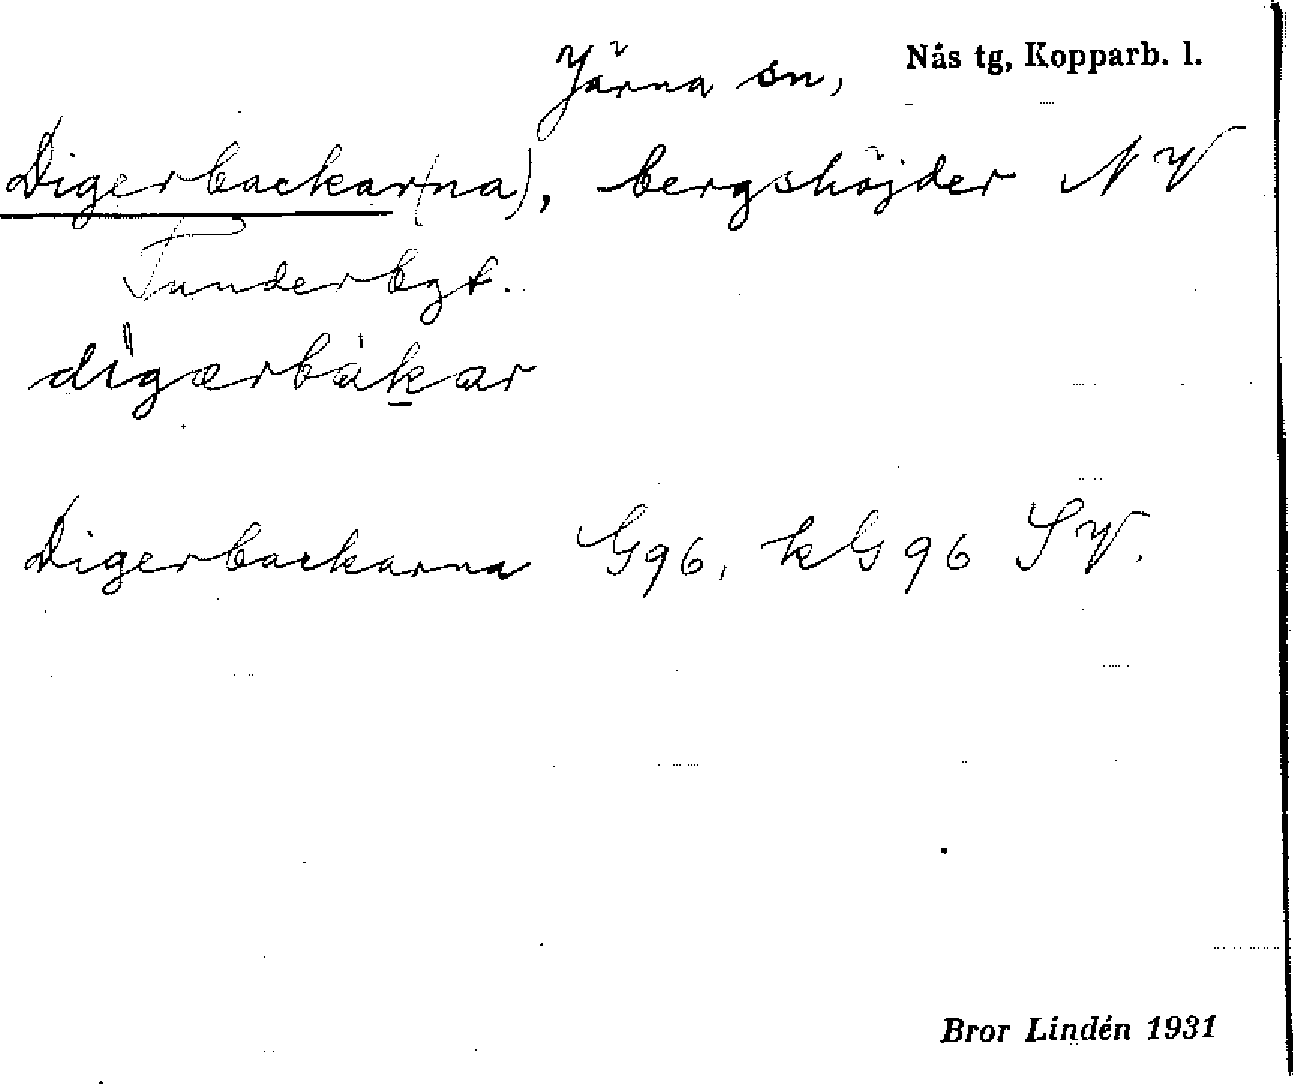 Järna sn, Nås tg, Kopparb. l.
Digerbackar(na), bergshöjder NV
Tunderbgt.
dìgærbákar
Digerbackarna G96, kG96 SV.
Bror Lindén 1931